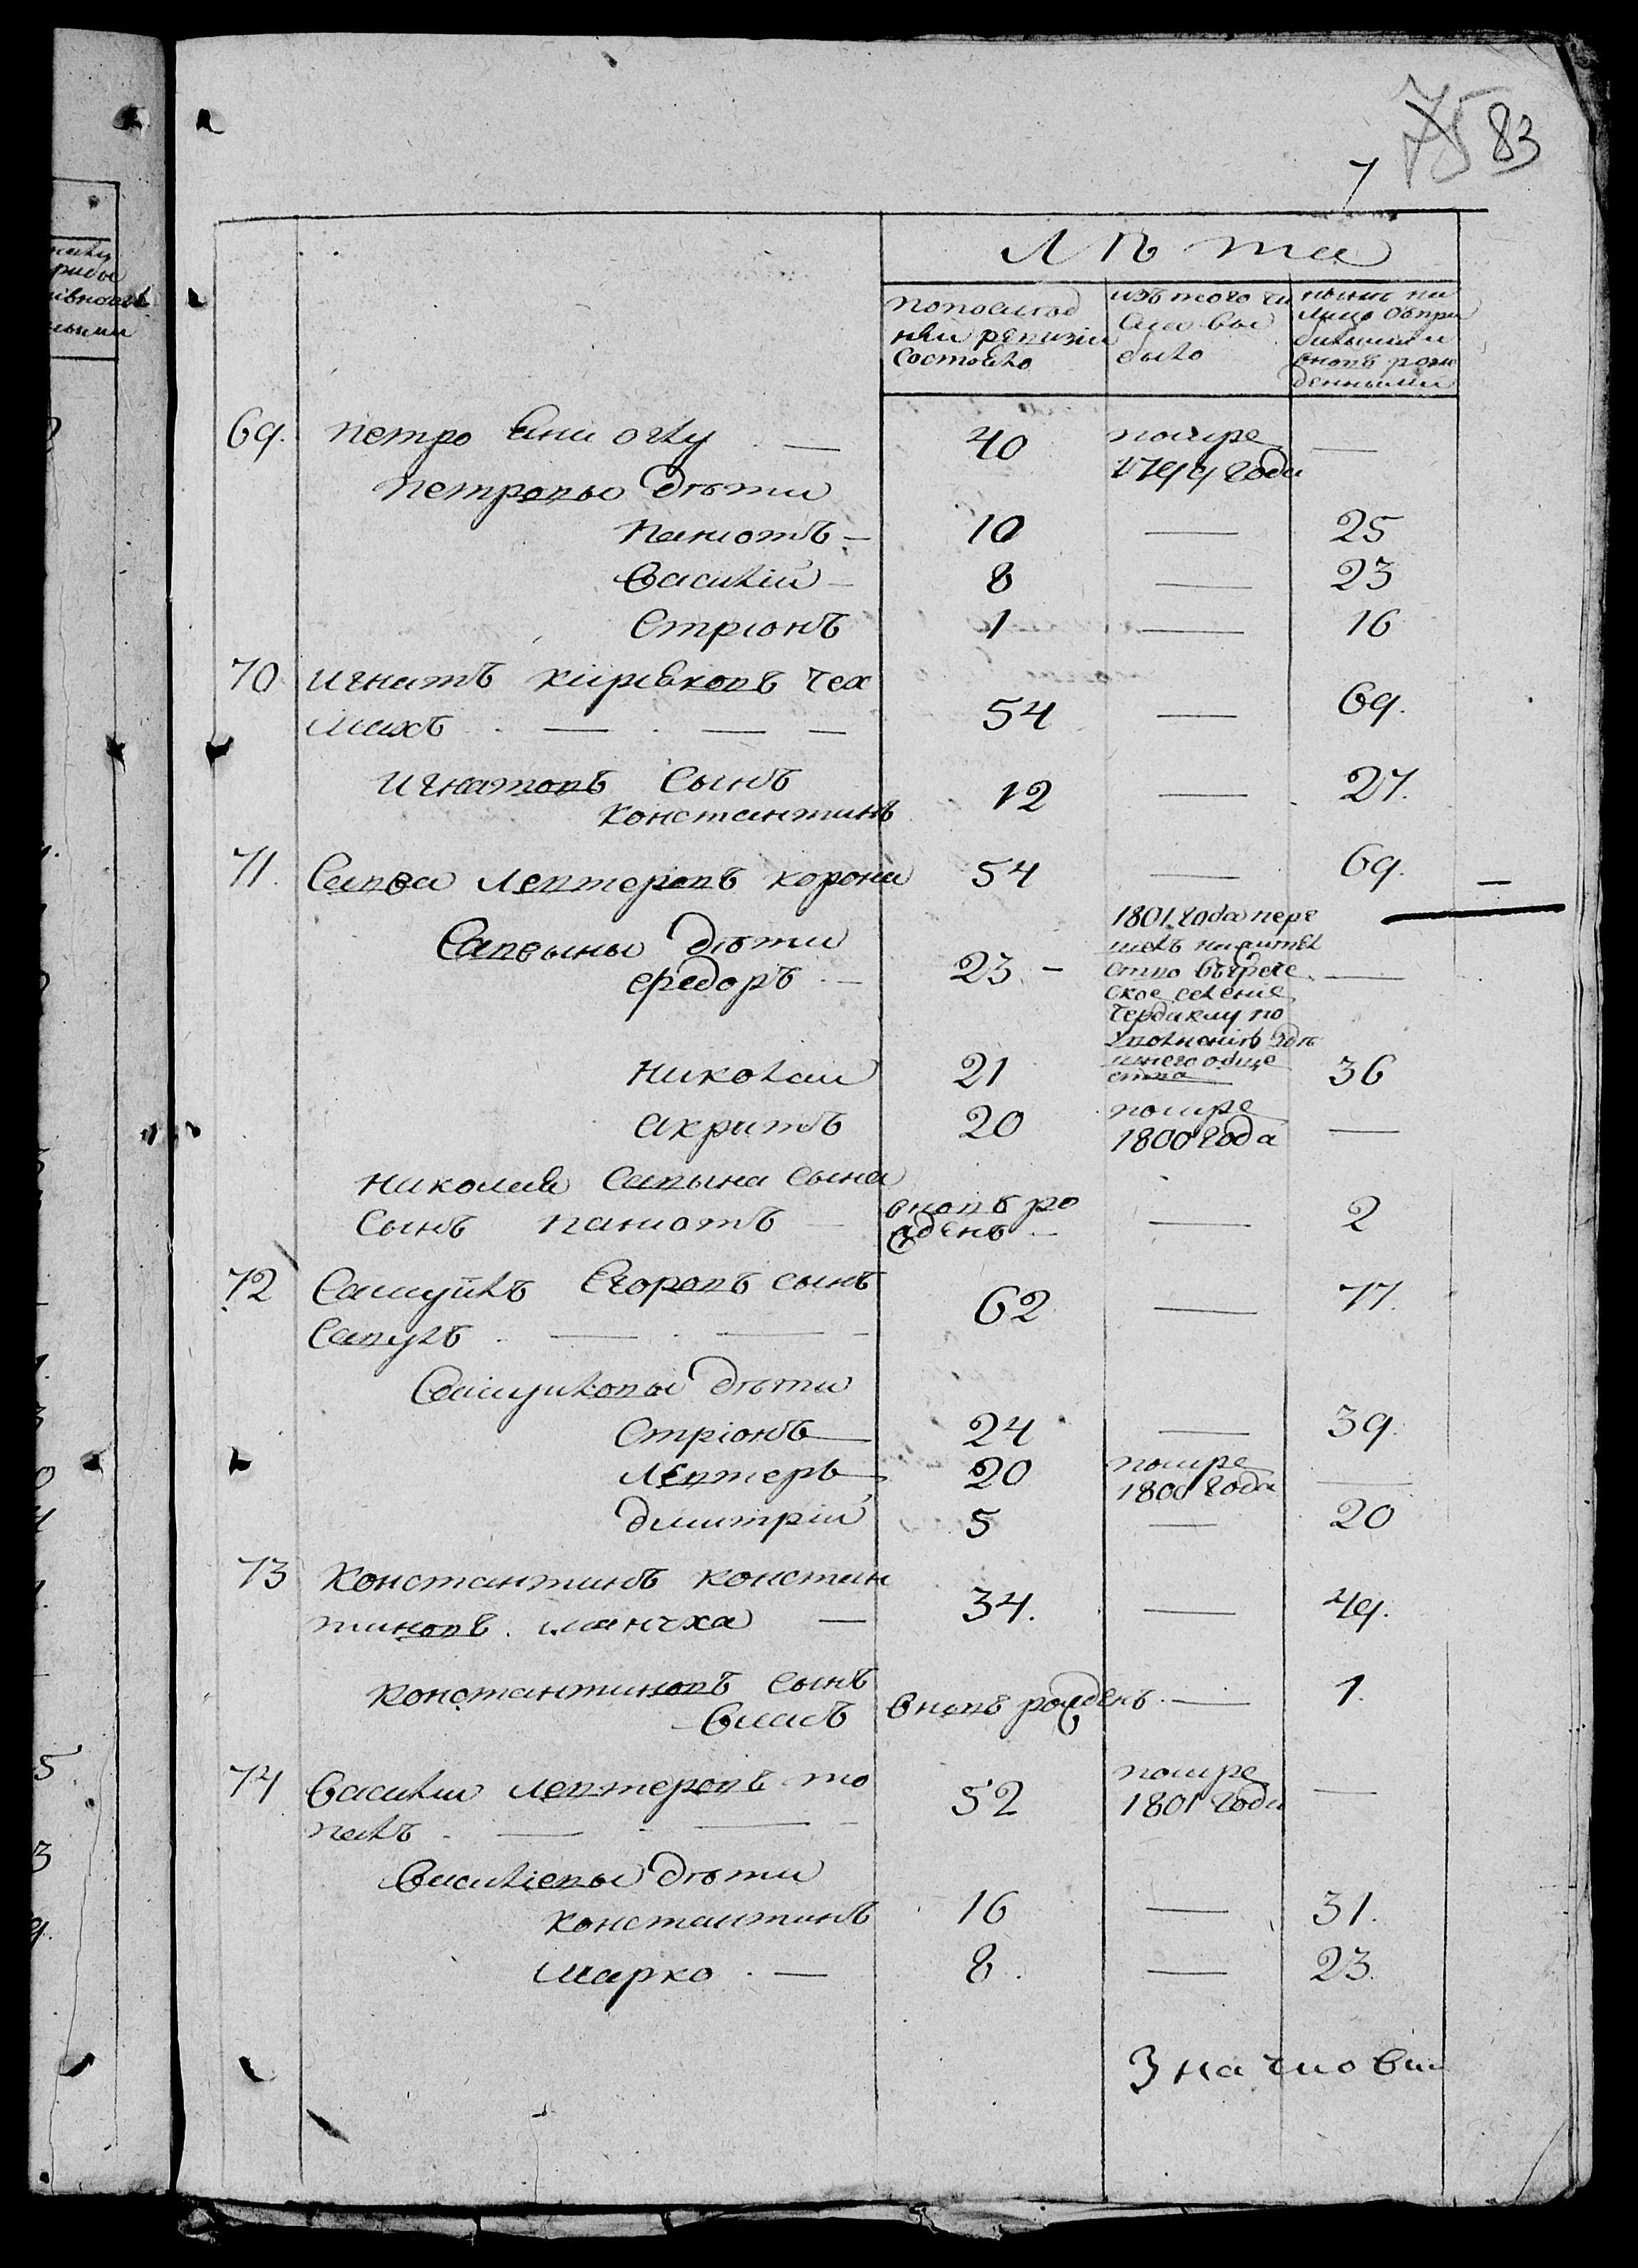 75 83
7
Лѣта
по послѣд
ней ревизіи
состояло
изъ того чи
сла вы
было
нынѣ на
лицо съ при
былыми и
вновь рож
денными
69. Петро Ени оглу — 40 помре —
1799 года
Петровы дѣти
Паніотъ — 10 — 25
Василій — 8 — 23
Стріонъ 1 — 16
70 Игнатъ Кирѣковъ Чех
махъ — — — 54 — 69.
Игнатовъ сынъ
Константинъ 12 — 27.
71. Савва Левтеровъ Корони 54 — 69.
Саввыны дѣти
Ѳедоръ — 23. — 1801 года пере —
шелъ на житель
ство въ грече
ское селеніе
Чердаклу по
уволненію здѣ
шнего обще
ства
Николай 21 36
Акритъ 20 помре —
1800 года
Николая Савина сына
сынъ Паніотъ — вновь ро — 2
жденъ —
72 Самуйлъ Егоровъ сынъ
Сапузъ — — 62 — 77.
Самуиловы дѣти
Стріонъ — 24 — 39.
Левтеръ — 20 помре —
1800 года
Дмитрій 5 — 20
73 Константинъ Констан
тиновъ Манчха — 34. — 49.
Константиновъ сынъ
Власъ вновь рожденъ — 1.
74 Василій Левтеровъ То
палъ — — 52 помре —
1801 года
Василіевы дѣти
Константинъ 16 — 31.
Марко — 8. — 23.